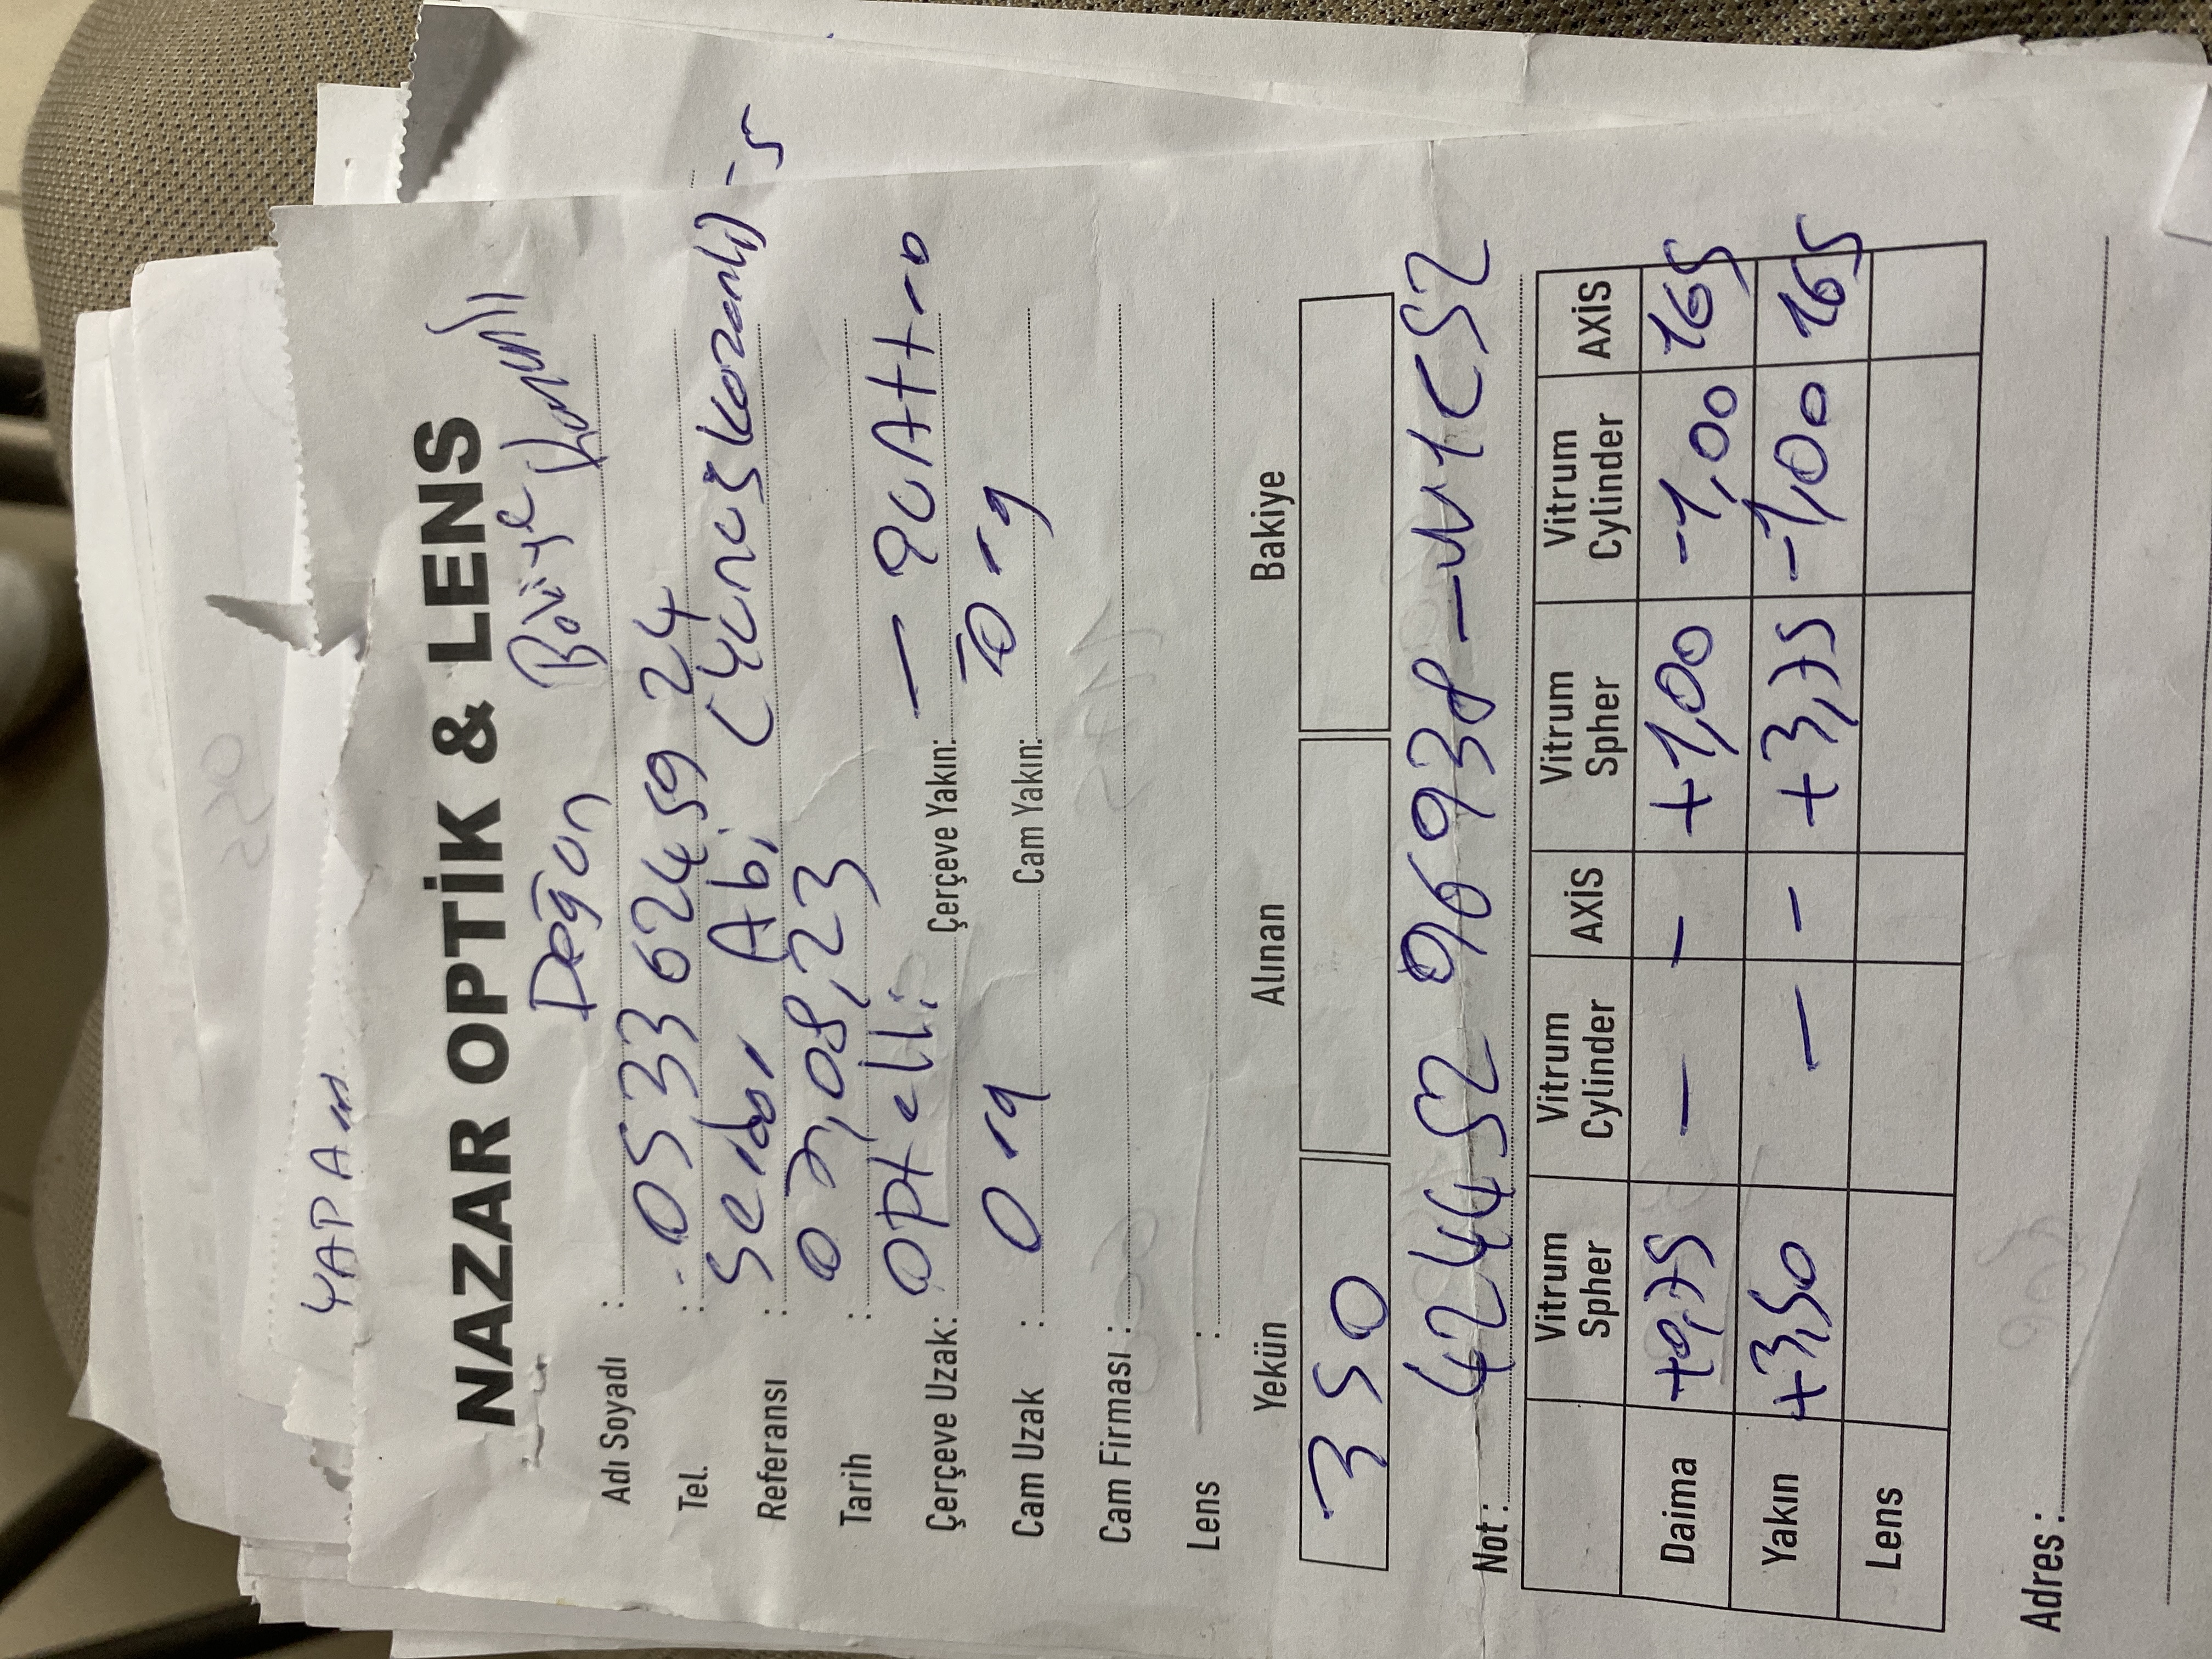 YAPAM
NAZAR OPTİK & LENS
Adı Soyadı : Doğan Bakiye Kazanlı
Tel. : 0533 624 59 24
Referansı : Serdar Abi (Yunus Kazanlı) - 5
Tarih : 07,08,23
Çerçeve Uzak: optelli Çerçeve Yakın: - QUAttro
Cam Uzak : Org Cam Yakın: - Org
Cam Firması :
Lens :
Yekün Alınan Bakiye
350
Not : 424452 96938-W1C52
Vitrum Spher Vitrum Cylinder AXİS Vitrum Spher Vitrum Cylinder AXİS
Daima +0,75 - - +1,00 -1,00 165
Yakın +3,50 - - +3,75 -1,00 165
Lens
Adres :